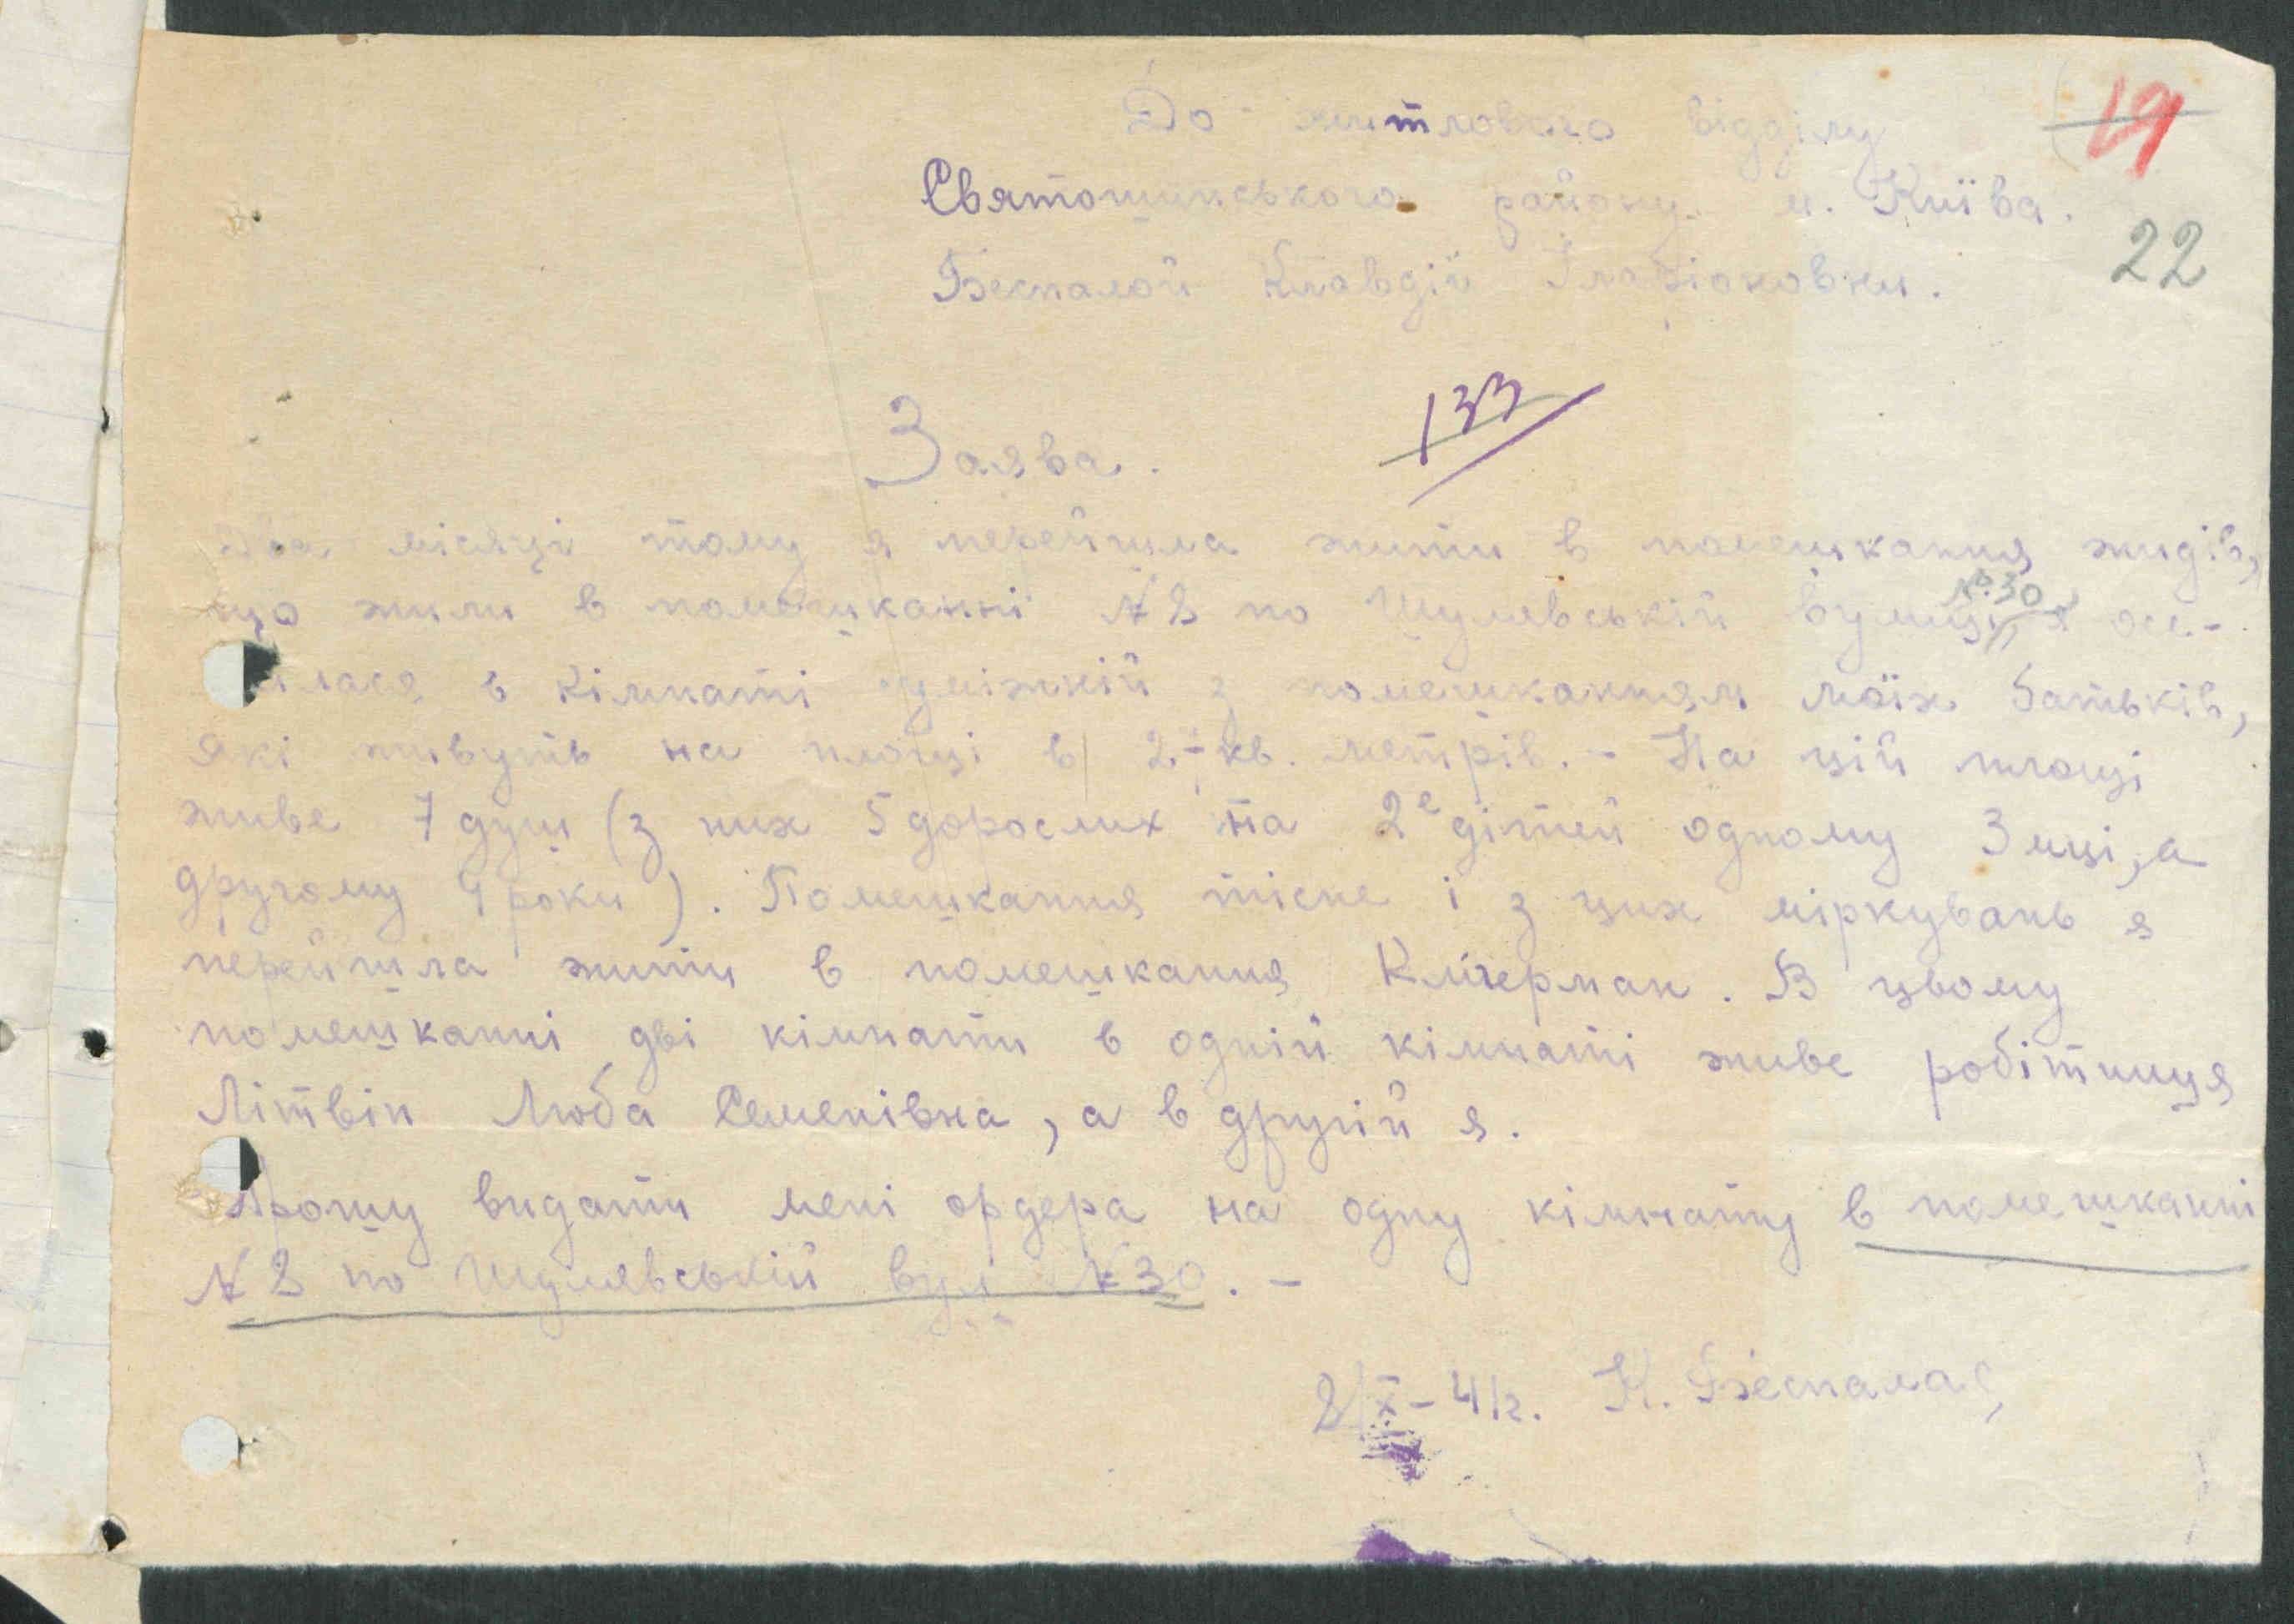 До житлового відділу
19
Святошинського району м. Київа.
22
Беспалой Клавдій Іларіоновни.
133
Заява.
Два місяці тому я перейшла жити в помешкання жидів,
що жили в помешканні №2 по Шулявській вулиці №30 я осе-
лилася в кімнаті суміжній з помешканням моїх батьків,
які живуть на площі в кв. метрів. - На цій площі
живе 7 душ (з них 5 дорослих та 2е дітей одному 3 мці, а
другому 4 роки). Помешкання тісне і з цих міркувань я
перейшла жити в помешкання В цьому
помешканні дві кімнати в одній кімнаті живе робітниця
Літвін Люба Семенівна, а в другій я.
Прошу видати мені ордера на одну кімнату в помешканні
№2 по Шулявській вул №30. -
2/X-41г. К. Беспалая